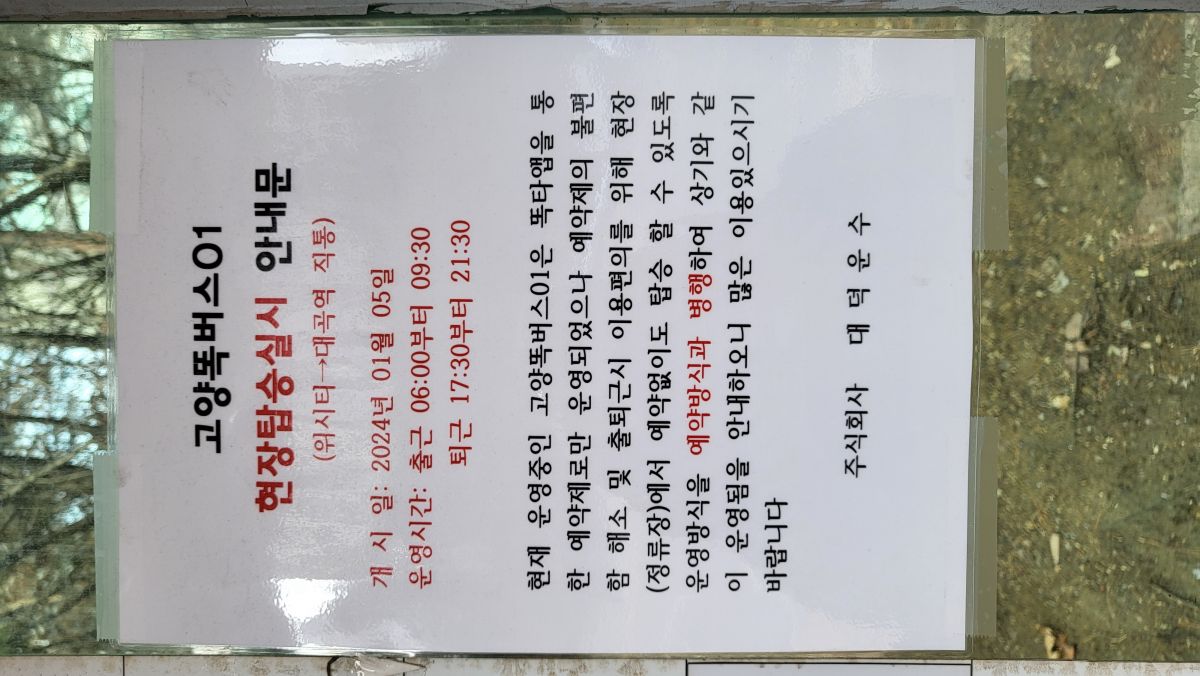 고양똑버스01
현장탑승실시 안내문
(위시티→대곡역 직통)
개 시 일: 2024년 01월 05일
운영시간: 출근 06:00부터 09:30
퇴근 17:30부터 21:30
현재 운영중인 고양똑버스01은 똑타앱을 통
한 예약제로만 운영되었으나 예약제의 불편
함 해소 및 출퇴근시 이용편의를 위해 현장
(정류장)에서 예약없이도 탑승 할 수 있도록
운영방식을 예약방식과 병행하여 상기와 같
이 운영됨을 안내하오니 많은 이용있으시기
바랍니다
주식회사 대 덕 운 수